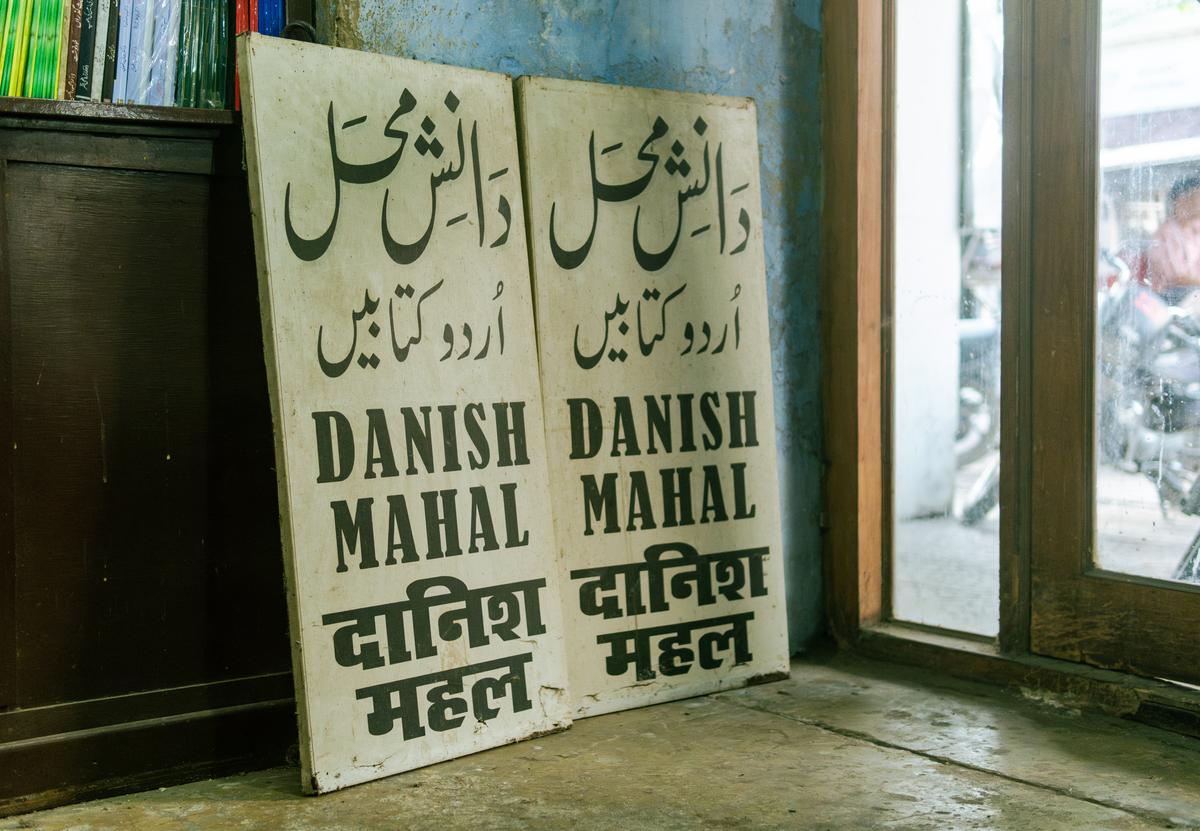 دَانِش محَل
اُردو کتابیں
DANISH
MAHAL
दानिश
महल
دَانِش محَل
اُردو کتابیں
DANISH
MAHAL
दानिश
महल